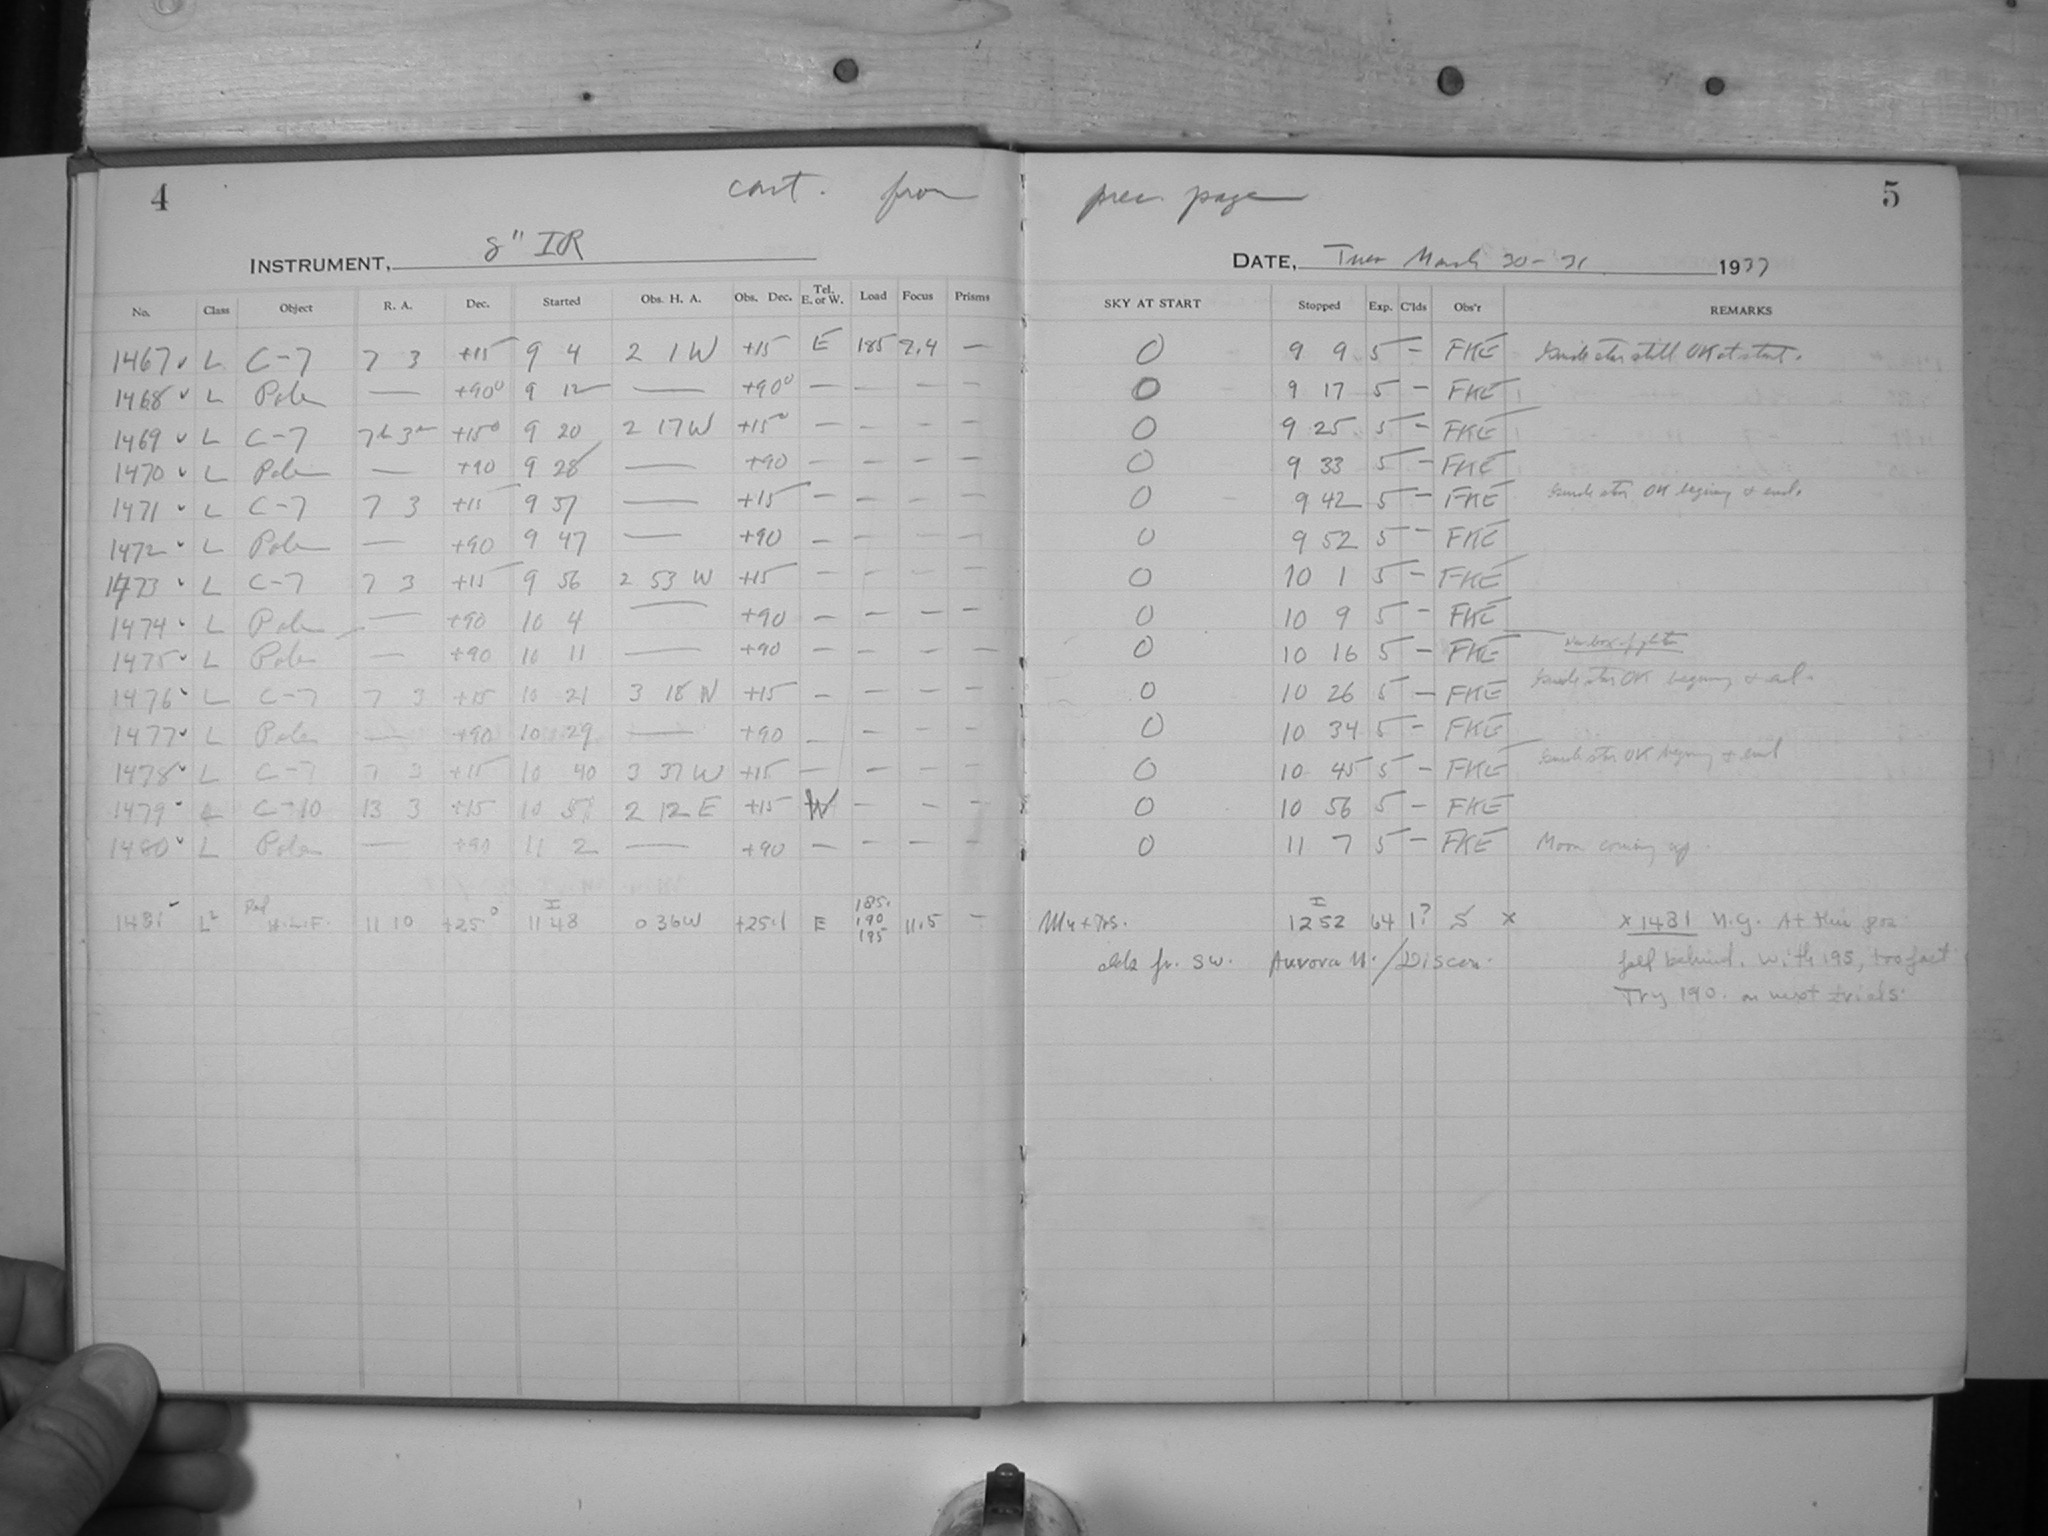 4 cont. from prec. page 5
INSTRUMENT, 8" IR DATE, Tues March 30-31 1937
No. Class Object R. A. Dec. Started Obs. H. A. Obs. Dec. Tel. E. or W. Load Focus Prisms SKY AT START Stopped Exp. C'lds Obs'r REMARKS
1467 ✓ L C-7 7 3 +15 9 4 2 1 W +15 E 185 7.4 — 0 9 9 5 — FKE Guide star still OK at start.
1468 ✓ L Pole — +90° 9 12 — +90° — — — — 0 9 17 5 — FKE
1469 ✓ L C-7 7h 3m +15° 9 20 2 17 W +15° — — — — 0 9 25 5 — FKE
1470 ✓ L Pole — +90 9 28 — +90 — — — — 0 9 33 5 — FKE
1471 ✓ L C-7 7 3 +15 9 37 — +15 — — — — 0 9 42 5 — FKE Guide star OK beginning & end.
1472 ✓ L Pole — +90 9 47 — +90 — — — — 0 9 52 5 — FKE
1473 ✓ L C-7 7 3 +15 9 56 2 53 W +15 — — — — 0 10 1 5 — FKE
1474 ✓ L Pole — +90 10 4 — +90 — — — — 0 10 9 5 — FKE
New box of plates
1475 ✓ L Pole — +90 10 11 — +90 — — — — 0 10 16 5 — FKE
1476 ✓ L C-7 7 3 +15 10 21 3 18 W +15 — — — — 0 10 26 5 — FKE Guide star OK beginning & end.
1477 ✓ L Pole — +90 10 29 — +90 — — — — 0 10 34 5 — FKE
1478 ✓ L C-7 7 3 +15 10 40 3 37 W +15 — — — — 0 10 45 5 — FKE Guide star OK beginning & end
1479 ✓ L C-10 13 3 +15 10 51 2 12 E +15 W — — — 0 10 56 5 — FKE
1480 ✓ L Pole — +90 11 2 — +90 — — — — 0 11 7 5 — FKE Moon coming up.
1481 ✓ L² H.L.F. 11 10 +25° I 11 48 0 36 W +25.1 E 185. 190 195 11.5 — I 12 52 64 1? S x x 1481 N.G. At this pos
clds fr. SW. Aurora N./Discon. fell behind. With 195, too fast
Try 190. on next trials.